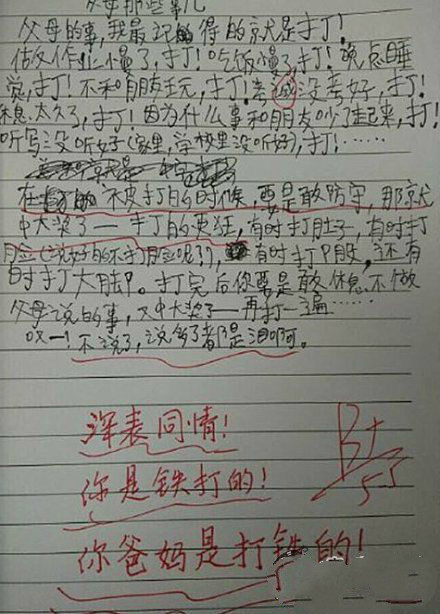 父母那些事儿
父母的事,我最记得的就是打了!
做作业慢了,打!吃饭慢了,打!晚点睡
觉,打!不和朋友玩,打!考试没考好,打!
休息太久了,打!因为什么事和朋友吵了起来,打!
听写没听好(家里,学校里没听好),打!……
在 不被打的时候,要是敢防守,那就
中大奖了——打的更狂,有时打肚子,有时打
脸(说好的不打脸呢?),有时打屁股,还有
时打大脚。打完后你要是敢休息,不做
父母说的事,又中大奖——再打一遍……
哎!不说了,说多了都是泪啊。
深表同情!
B+
你是铁打的!
你爸妈是打铁的!